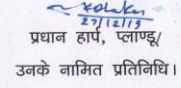 27/12/19
प्रधान हार्प, प्लाण्डू/
उनके नामित प्रतिनिधि।